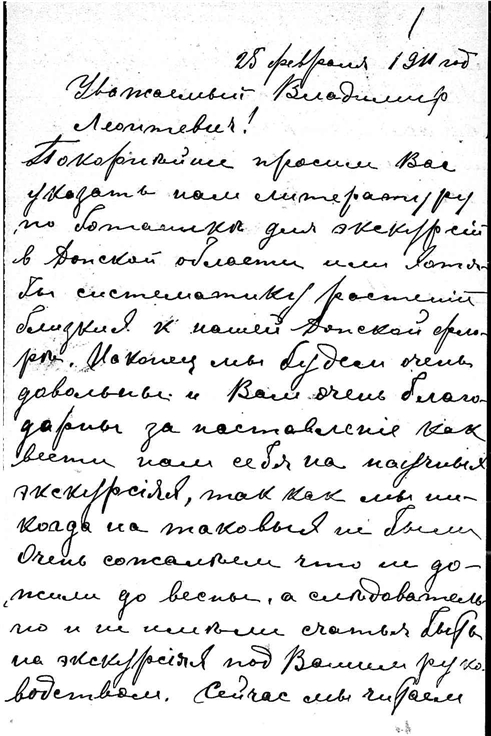 25 февраля 1911 год
Уважаемый Владимир
Леонтевич!
Покорнѣйше просим Вас
указать нам литературу
по ботаникѣ для экскурсій
в Донской области или хотя
бы систематику растеній
близкия к нашей Донской фло-
рѣ. Наконец мы будем очень
довольны и Вам очень благо-
дарны за наставленіе как
вести нам себя на научных
экскурсіях, так как мы ни-
когда на таковых не были
Очень сожалѣем что не до-
жили до весны, а слѣдователь
но и не имѣли счастья быть
на экскурсіях под Вашим руко-
водством. Сейчас мы читаем